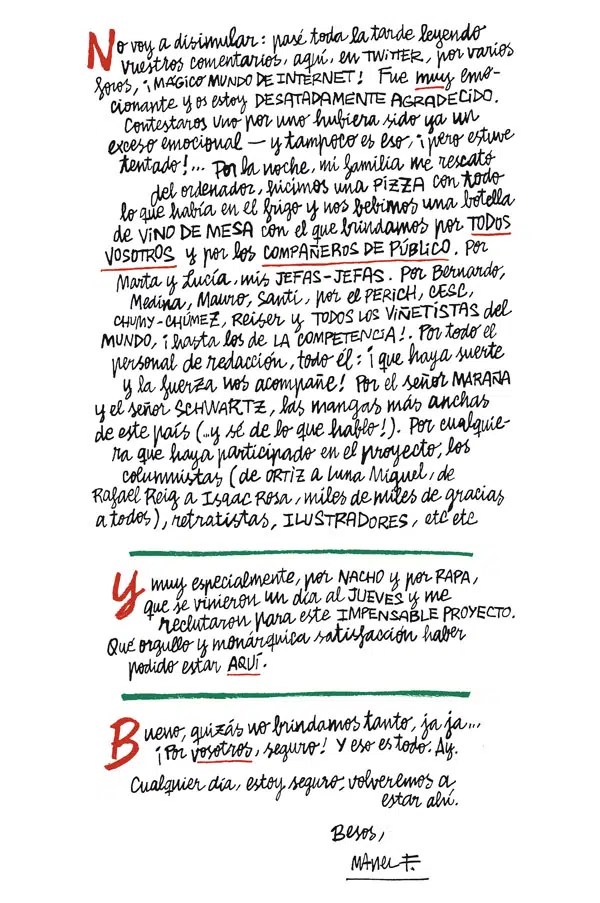 No voy a disimular: pasé toda la tarde leyendo
vuestros comentarios, aquí, en TWITTER, por varios
foros, ¡MÁGICO MUNDO DE INTERNET! Fue muy emo-
cionante y os estoy DESATADAMENTE AGRADECIDO.
Contestaros uno por uno hubiera sido ya un
exceso emocional — y tampoco es eso, ¡pero estuve
tentado!... Por la noche, mi familia me rescató
del ordenador, hicimos una PIZZA con todo
lo que había en el frigo y nos bebimos una botella
de VINO DE MESA con el que brindamos por TODOS
VOSOTROS y por los COMPAÑEROS DE PÚBLICO. Por
Marta y Lucía, mis JEFAS-JEFAS. Por Bernardo,
Medina, Mauro, Santi, por el PERICH, CESC,
CHUMY-CHÚMEZ, Reiser y TODOS LOS VIÑETISTAS del
MUNDO, ¡hasta los de LA COMPETENCIA!. Por todo el
personal de redacción, todo él: ¡que haya suerte
y la fuerza nos acompañe! Por el señor MARAÑA
y el señor SCHWARTZ, las mangas más anchas
de este país (...y sé de lo que hablo!). Por cualquie-
ra que haya participado en el proyecto, los
columnistas (de ORTIZ a Luna Miguel, de
Rafael Reig a Isaac Rosa, miles de miles de gracias
a todos), retratistas, ILUSTRADORES, etc etc
Y muy especialmente, por NACHO y por RAPA,
que se vinieron un día al JUEVES y me
reclutaron para este IMPENSABLE PROYECTO.
Qué orgullo y monárquica satisfacción haber
podido estar AQUÍ.
Bueno, quizás no brindamos tanto, ja ja...
¡Por vosotros, seguro! Y eso es todo. Ay.
Cualquier día, estoy seguro, volveremos a
estar ahí.
Besos,
MANEL F.